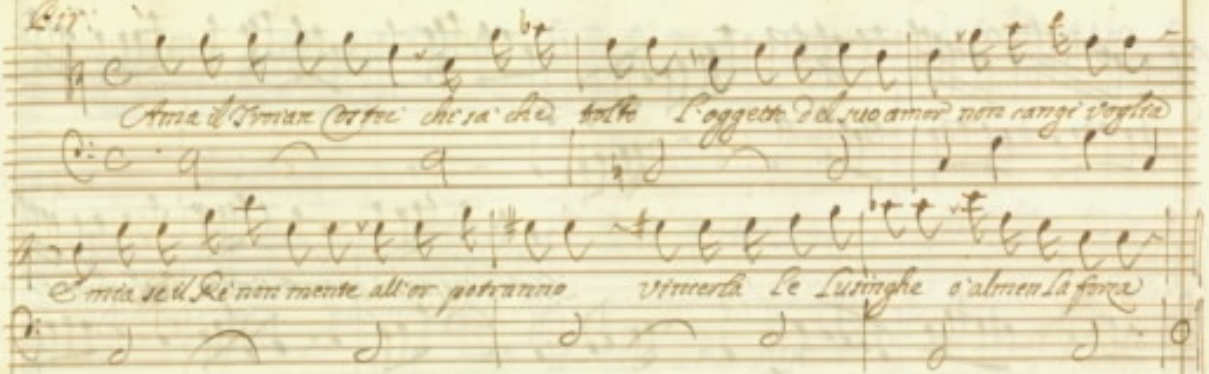 Pir:
Ama il Troian Costei chi sa che tolto L'oggetto del suo amor non cangi voglia
E mia se il Re non mente all'or potranno vincerla le Lusinghe o' almen la forza